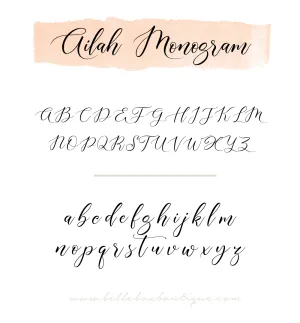 Ailah Monogram
ABCDEFGHIJKLM
NOPQRSTUVWXYZ
abcdefghijklm
nopqrstuvwxyz
www.bellaboxboutique.com